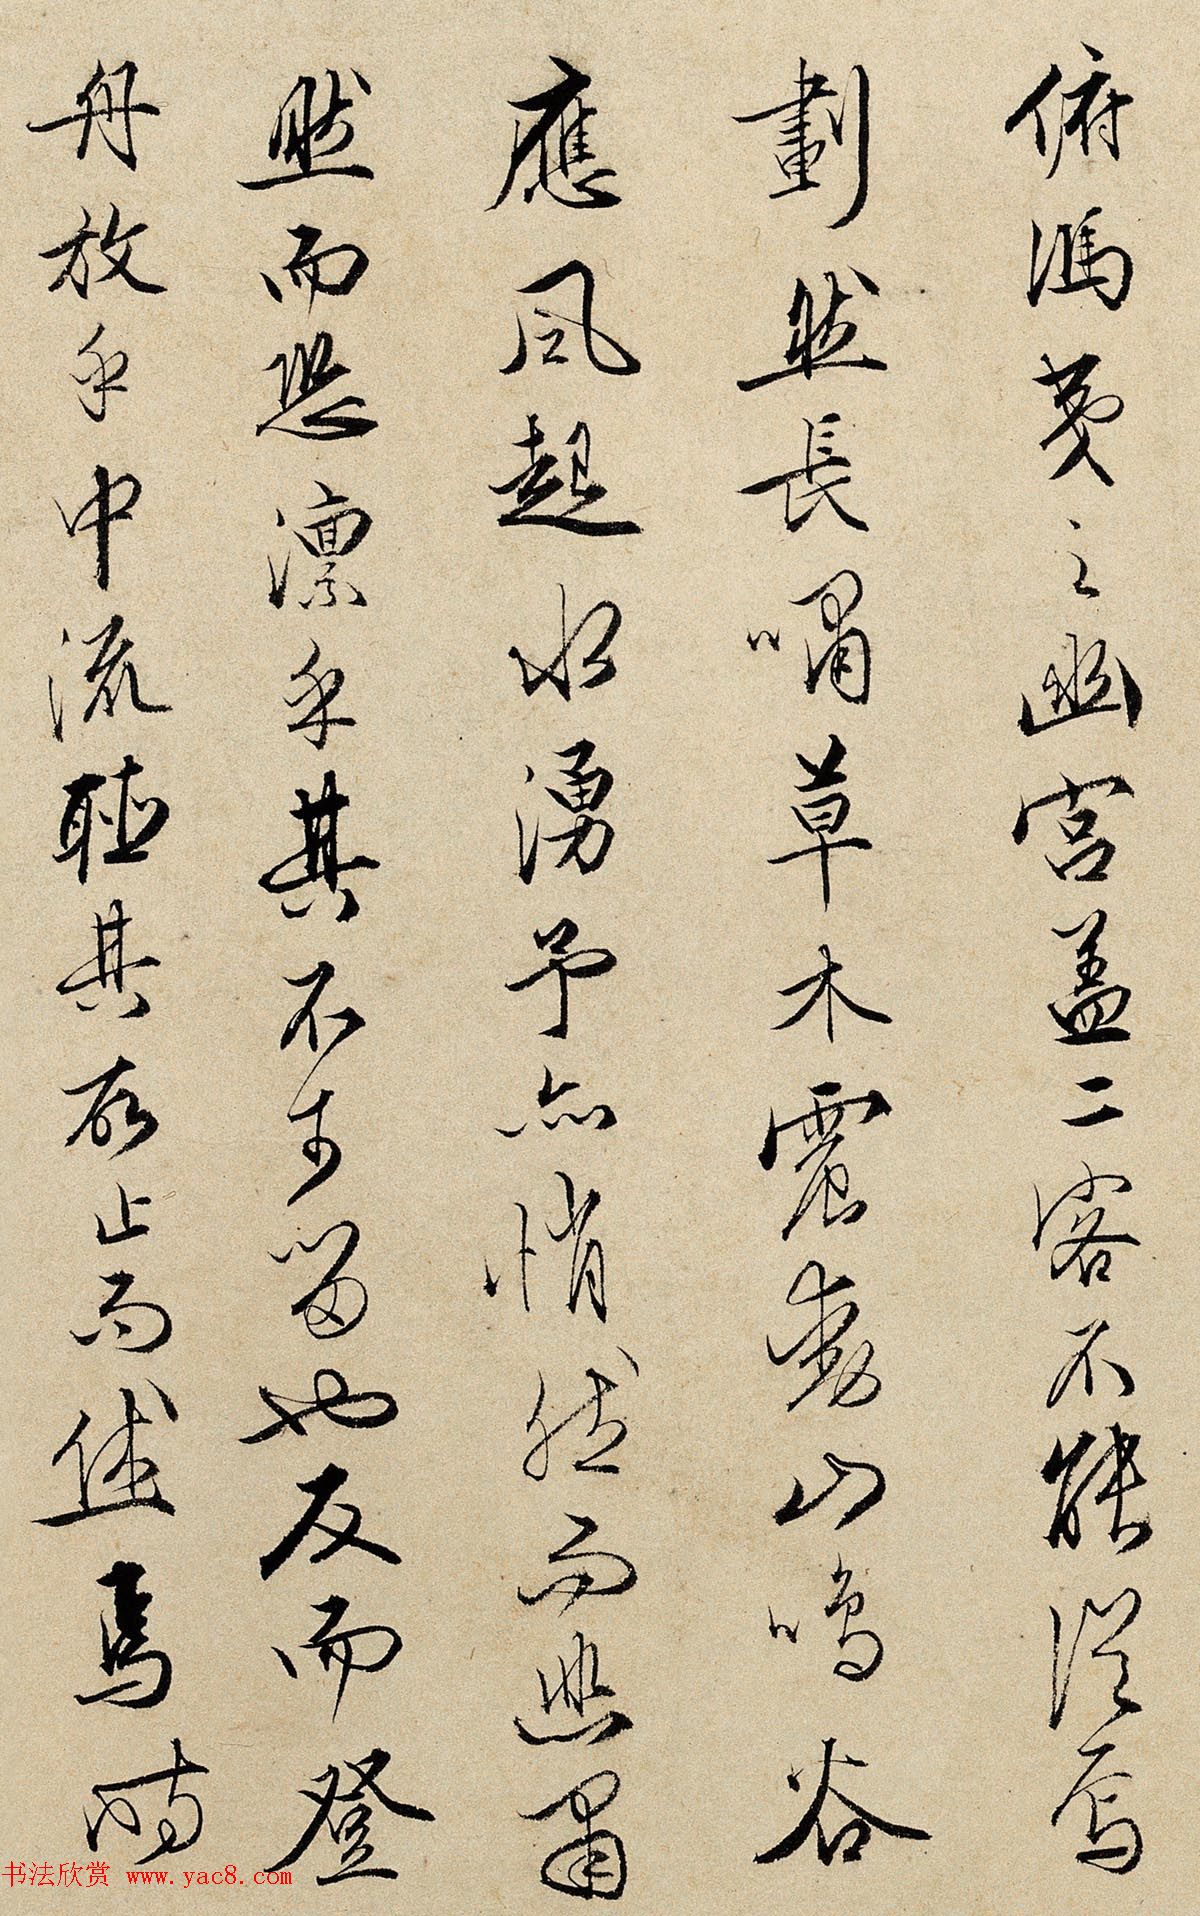 俯馮夷之幽宮盖二客不能從焉
劃然長嘯草木震動山鳴谷
應風起水湧予亦悄然而悲肅
然而恐凛乎其不可留也反而登
舟放乎中流聽其所止而休焉時
书法欣赏 www.yac8.com